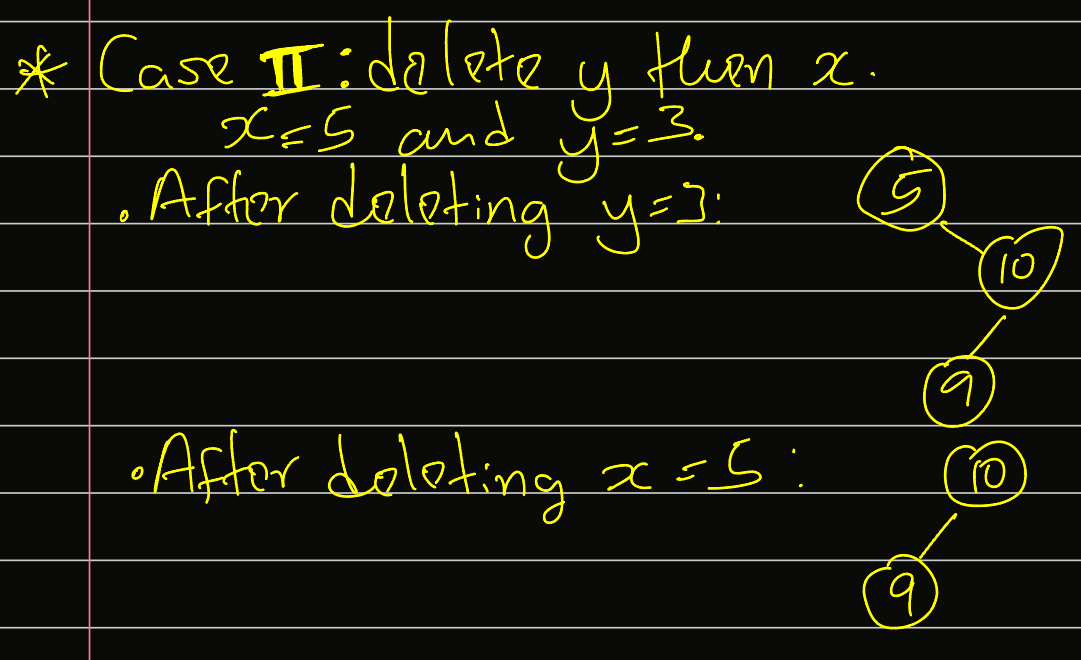 * Case II: delete y then x.
x=5 and y=3.
. After deleting y=3:
5
10
9
. After deleting x=5:
10
9